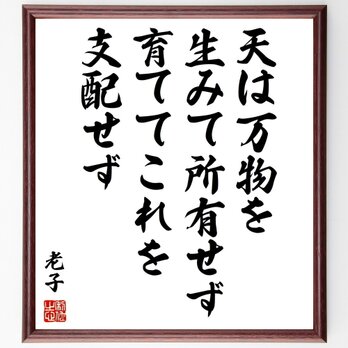 天は万物を
生みて所有せず
育ててこれを
支配せず
老子